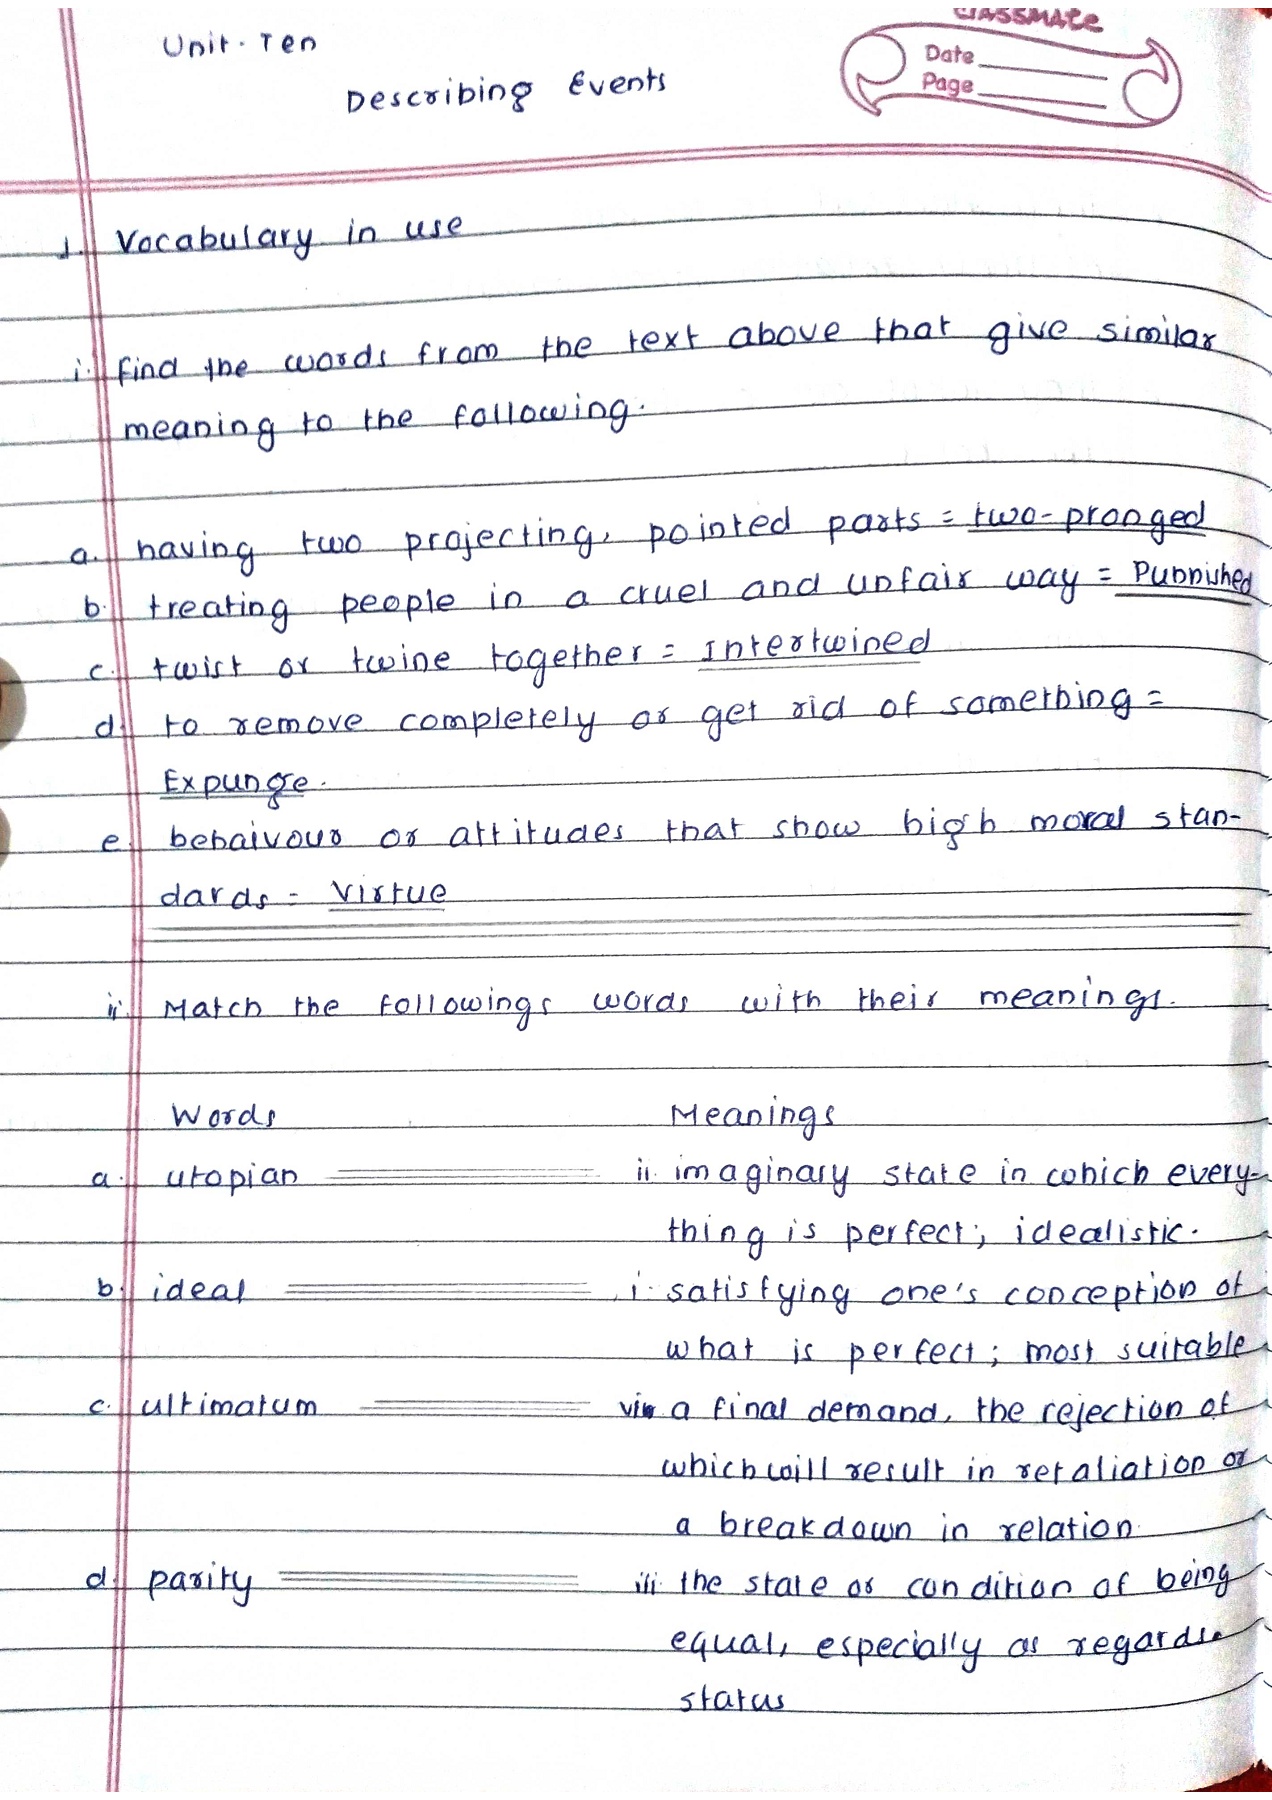 classmate
Date
Page
Unit. Ten
Describing Events
1. Vocabulary in use
i. find the words from the text above that give similar
meaning to the following.
a. having two projecting, pointed parts = two-pronged
b. treating people in a cruel and unfair way = Punnished
c. twist or twine together = Intertwined
d. to remove completely or get rid of something =
Expunge.
e. behaivour or attitudes that show high moral stan-
dards = Virtue
ii. Match the followings words with their meanings.
Words Meanings
a. utopian ii. imaginary state in which every-
thing is perfect; idealistic.
b. ideal i. satisfying one's conception of
what is perfect; most suitable
c. ultimatum a final demand, the rejection of
which will result in retaliation or
a breakdown in relation.
d. parity iii. the state or condition of being
equal, especially as regards
status